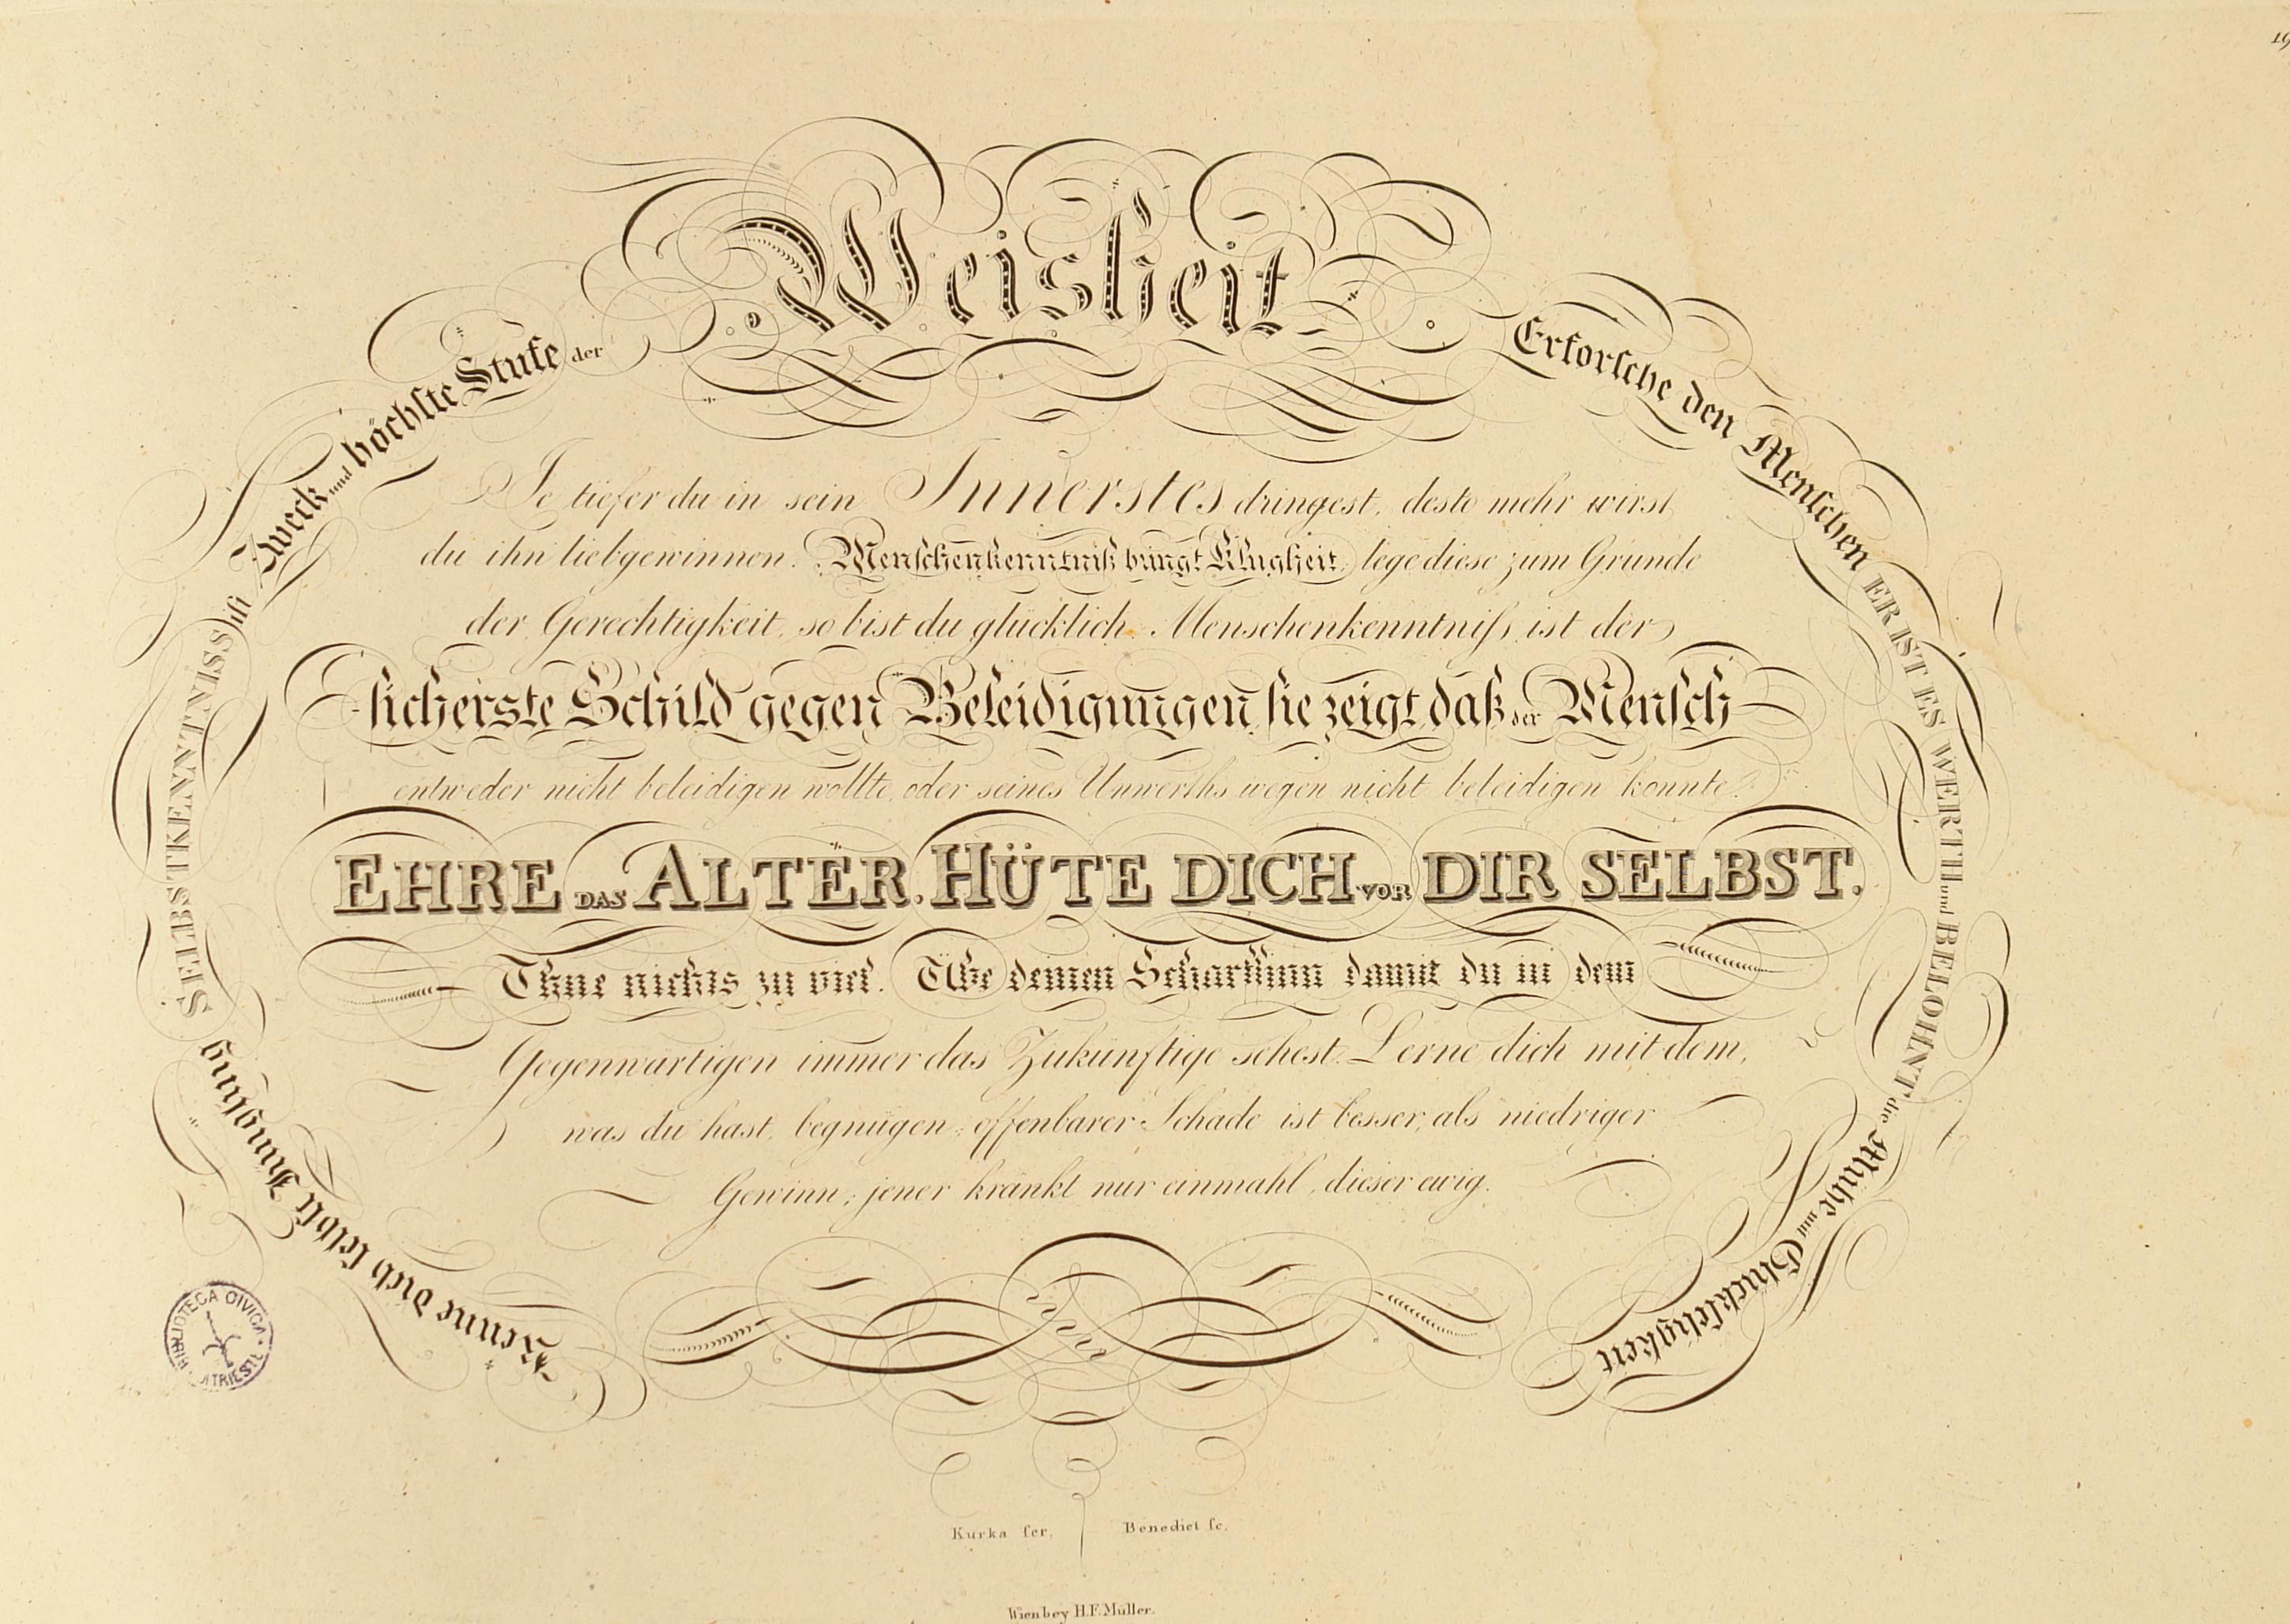 19
Kenne dich selbst Jüngling
SELBSTKENNTNISS ist Zweck und höchste Stufe der
Weisheit
Erforsche den Menschen ER IST ES WERTH und BELOHNT die Mühe mit Glückseligkeit
Je tiefer du in sein Innerstes dringest, desto mehr wirst
du ihn liebgewinnen. Menschenkenntniß bringt Klugheit, lege diese zum Grunde
der Gerechtigkeit, so bist du glücklich. Menschenkenntniß ist der
sicherste Schild gegen Beleidigungen, sie zeigt, daß der Mensch
entweder nicht beleidigen wollte, oder seines Unwerths wegen nicht beleidigen konnte.
EHRE DAS ALTER. HÜTE DICH VOR DIR SELBST.
Thue nichts zu viel. Übe deinen Scharfsinn damit du in dem
Gegenwärtigen immer das Zukünftige sehest. Lerne dich mit dem,
was du hast, begnügen; offenbarer Schade ist besser, als niedriger
Gewinn; jener kränkt nur einmahl, dieser ewig.
BIBLIOTECA CIVICA TRIESTE
Kurka scr. Benedict sc.
Wien bey H. F. Müller.